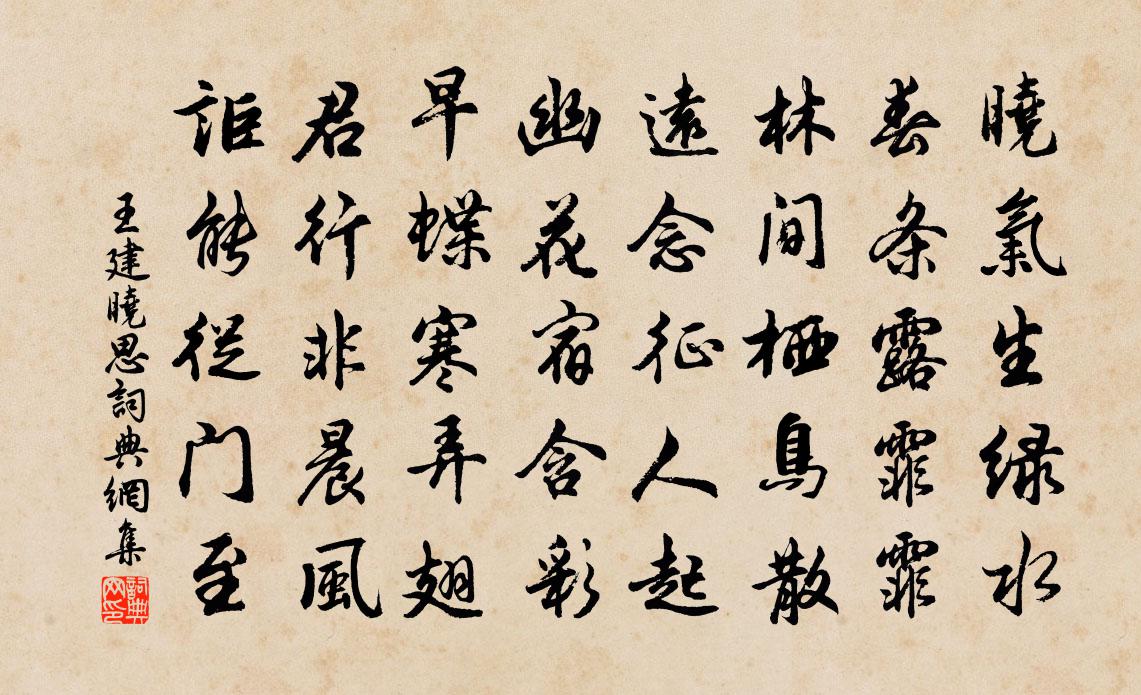 曉氣生緑水
春条露霏霏
林间栖鳥散
遠念征人起
幽花宿含彩
早蝶寒弄翅
君行非晨風
詎能從门至
王建曉思詞典網集
詞典网印